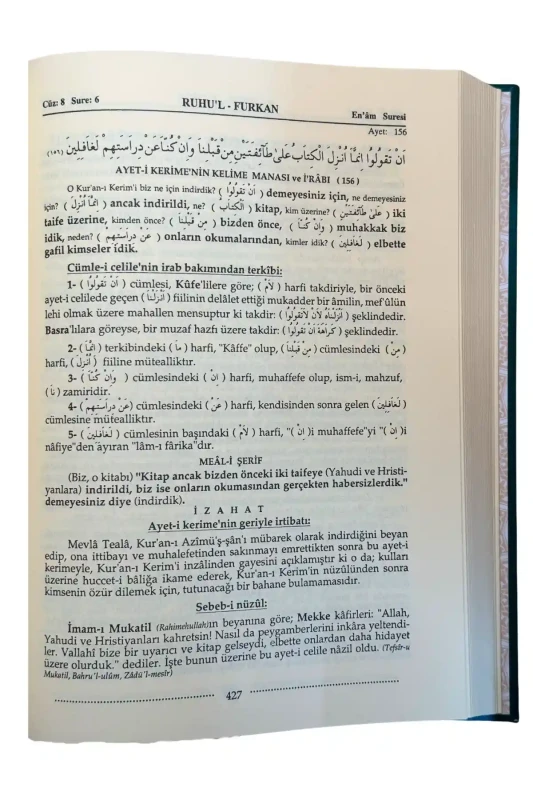 Cüz: 8 Sure: 6
RUHU'L - FURKAN
En'âm Suresi
Ayet: 156
اَنْ تَقُولُوا اِنَّمَا اُنْزِلَ الْكِتَابُ عَلٰى طَائِفَتَيْنِ مِنْ قَبْلِنَا وَاِنْ كُنَّا عَنْ دِرَاسَتِهِمْ لَغَافِلِينَ (١٥٦)
AYET-İ KERİME'NİN KELİME MANASI ve İ'RÂBI ( 156 )
O Kur'an-ı Kerim'i biz ne için indirdik? ( اَنْ تَقُولُوا ) demeyesiniz için, ne demeyesiniz
için? ( اِنَّمَا اُنْزِلَ ) ancak indirildi, ne? ( الْكِتَابُ ) kitap, kim üzerine? ( عَلٰى طَائِفَتَيْنِ ) iki
taife üzerine, kimden önce? ( مِنْ قَبْلِنَا ) bizden önce, ( وَاِنْ كُنَّا ) muhakkak biz
idik, neden? ( عَنْ دِرَاسَتِهِمْ ) onların okumalarından, kimler idik? ( لَغَافِلِينَ ) elbette
gafil kimseler idik.
Cümle-i celile'nin irab bakımından terkîbi:
1- ( اَنْ تَقُولُوا ) cümlesi, Kûfe'lilere göre; ( لاَمْ ) harfi takdiriyle, bir önceki
ayet-i celilede geçen ( اَنْزَلْنَا ) fiilinin delâlet ettiği mukadder bir âmilin, mef'ûlün
lehi olmak üzere mahallen mensuptur ki takdir: ( اَنْزَلْنَاهُ لِاَنْ لَاتَقُولُوا ) şeklindedir.
Basra'lılara göreyse, bir muzaf hazfı üzere takdir: ( كَرَاهَةَ اَنْ تَقُولُوا ) şeklindedir.
2- ( اِنَّمَا ) terkibindeki ( مَا ) harfi, "Kâffe" olup, ( مِنْ قَبْلِنَا ) cümlesindeki ( مِنْ )
harfi, ( اُنْزِلَ ) fiiline müteallıktır.
3- ( وَاِنْ كُنَّا ) cümlesindeki ( اِنْ ) harfi, muhaffefe olup, ism-i, mahzuf,
( نَا ) zamiridir.
4- ( عَنْ دِرَاسَتِهِمْ ) cümlesindeki ( عَنْ ) harfi, kendisinden sonra gelen ( لَغَافِلِينَ )
cümlesine müteallıktır.
5- ( لَغَافِلِينَ ) cümlesinin başındaki ( لاَمْ ) harfi, "( اِنْ )i muhaffefe"yi "( اِنْ )i
nâfiye"den ayıran "lâm-ı fârika"dır.
MEÂL-İ ŞERİF
(Biz, o kitabı) "Kitap ancak bizden önceki iki taifeye (Yahudi ve Hristi-
yanlara) indirildi, biz ise onların okumasından gerçekten habersizlerdik."
demeyesiniz diye (indirdik).
İ Z A H A T
Ayet-i kerime'nin geriyle irtibatı:
Mevlâ Tealâ, Kur'an-ı Azîmü'ş-şân'ı mübarek olarak indirdiğini beyan
edip, ona ittibayı ve muhalefetinden sakınmayı emrettikten sonra bu ayet-i
kerimeyle, Kur'an-ı Kerim'i inzâlinden gayesini açıklamıştır ki o da; kulları
üzerine huccet-i bâliğa ikame ederek, Kur'an-ı Kerim'in nüzûlünden sonra
kimsenin özür dilemek için, tutunacağı bir bahane bulamamasıdır.
Sebeb-i nüzûl:
İmam-ı Mukatil (Rahimehullah)ın beyanına göre; Mekke kâfirleri: "Allah,
Yahudi ve Hristiyanları kahretsin! Nasıl da peygamberlerini inkâra yeltendi-
ler. Vallahî bize bir uyarıcı ve kitap gelseydi, elbette onlardan daha hidayet
üzere olurduk." dediler. İşte bunun üzerine bu ayet-i celile nâzil oldu. (Tefsîr-u
Mukatil, Bahru'l-ulûm, Zâdü'l-mesîr)
427